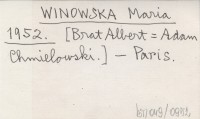 WINOWSKA Maria
1952. [Brat Albert = Adam
Chmielowski.] — Paris.